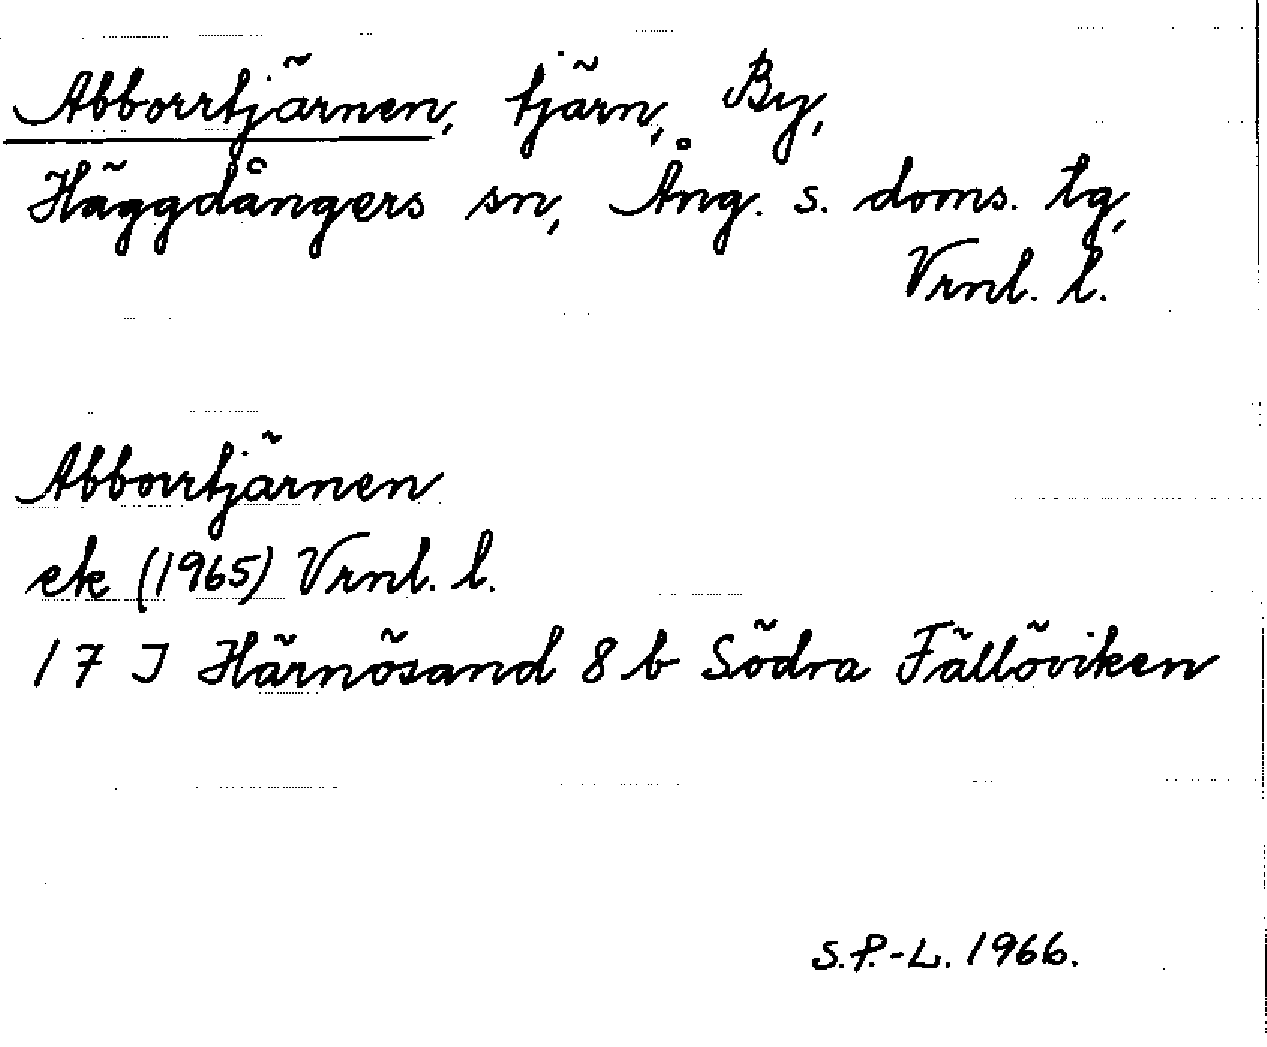 Abborrtjärnen, tjärn, By,
Häggdångers sn, Ång. s. doms. tg,
Vrnl. l.
Abborrtjärnen
ek (1965) Vrnl. l.
17 I Härnösand 8 b Södra Fällöviken
S.P.-L. 1966.